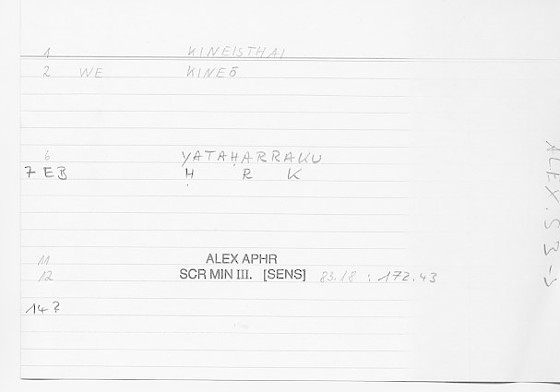 1 KINEISTHAI
2 WE KINEŌ
6 YATAḤARRAKU
7 EB Ḥ R K
11 ALEX APHR
12 SCR MIN III. [SENS] 83.18 : 172.43
147